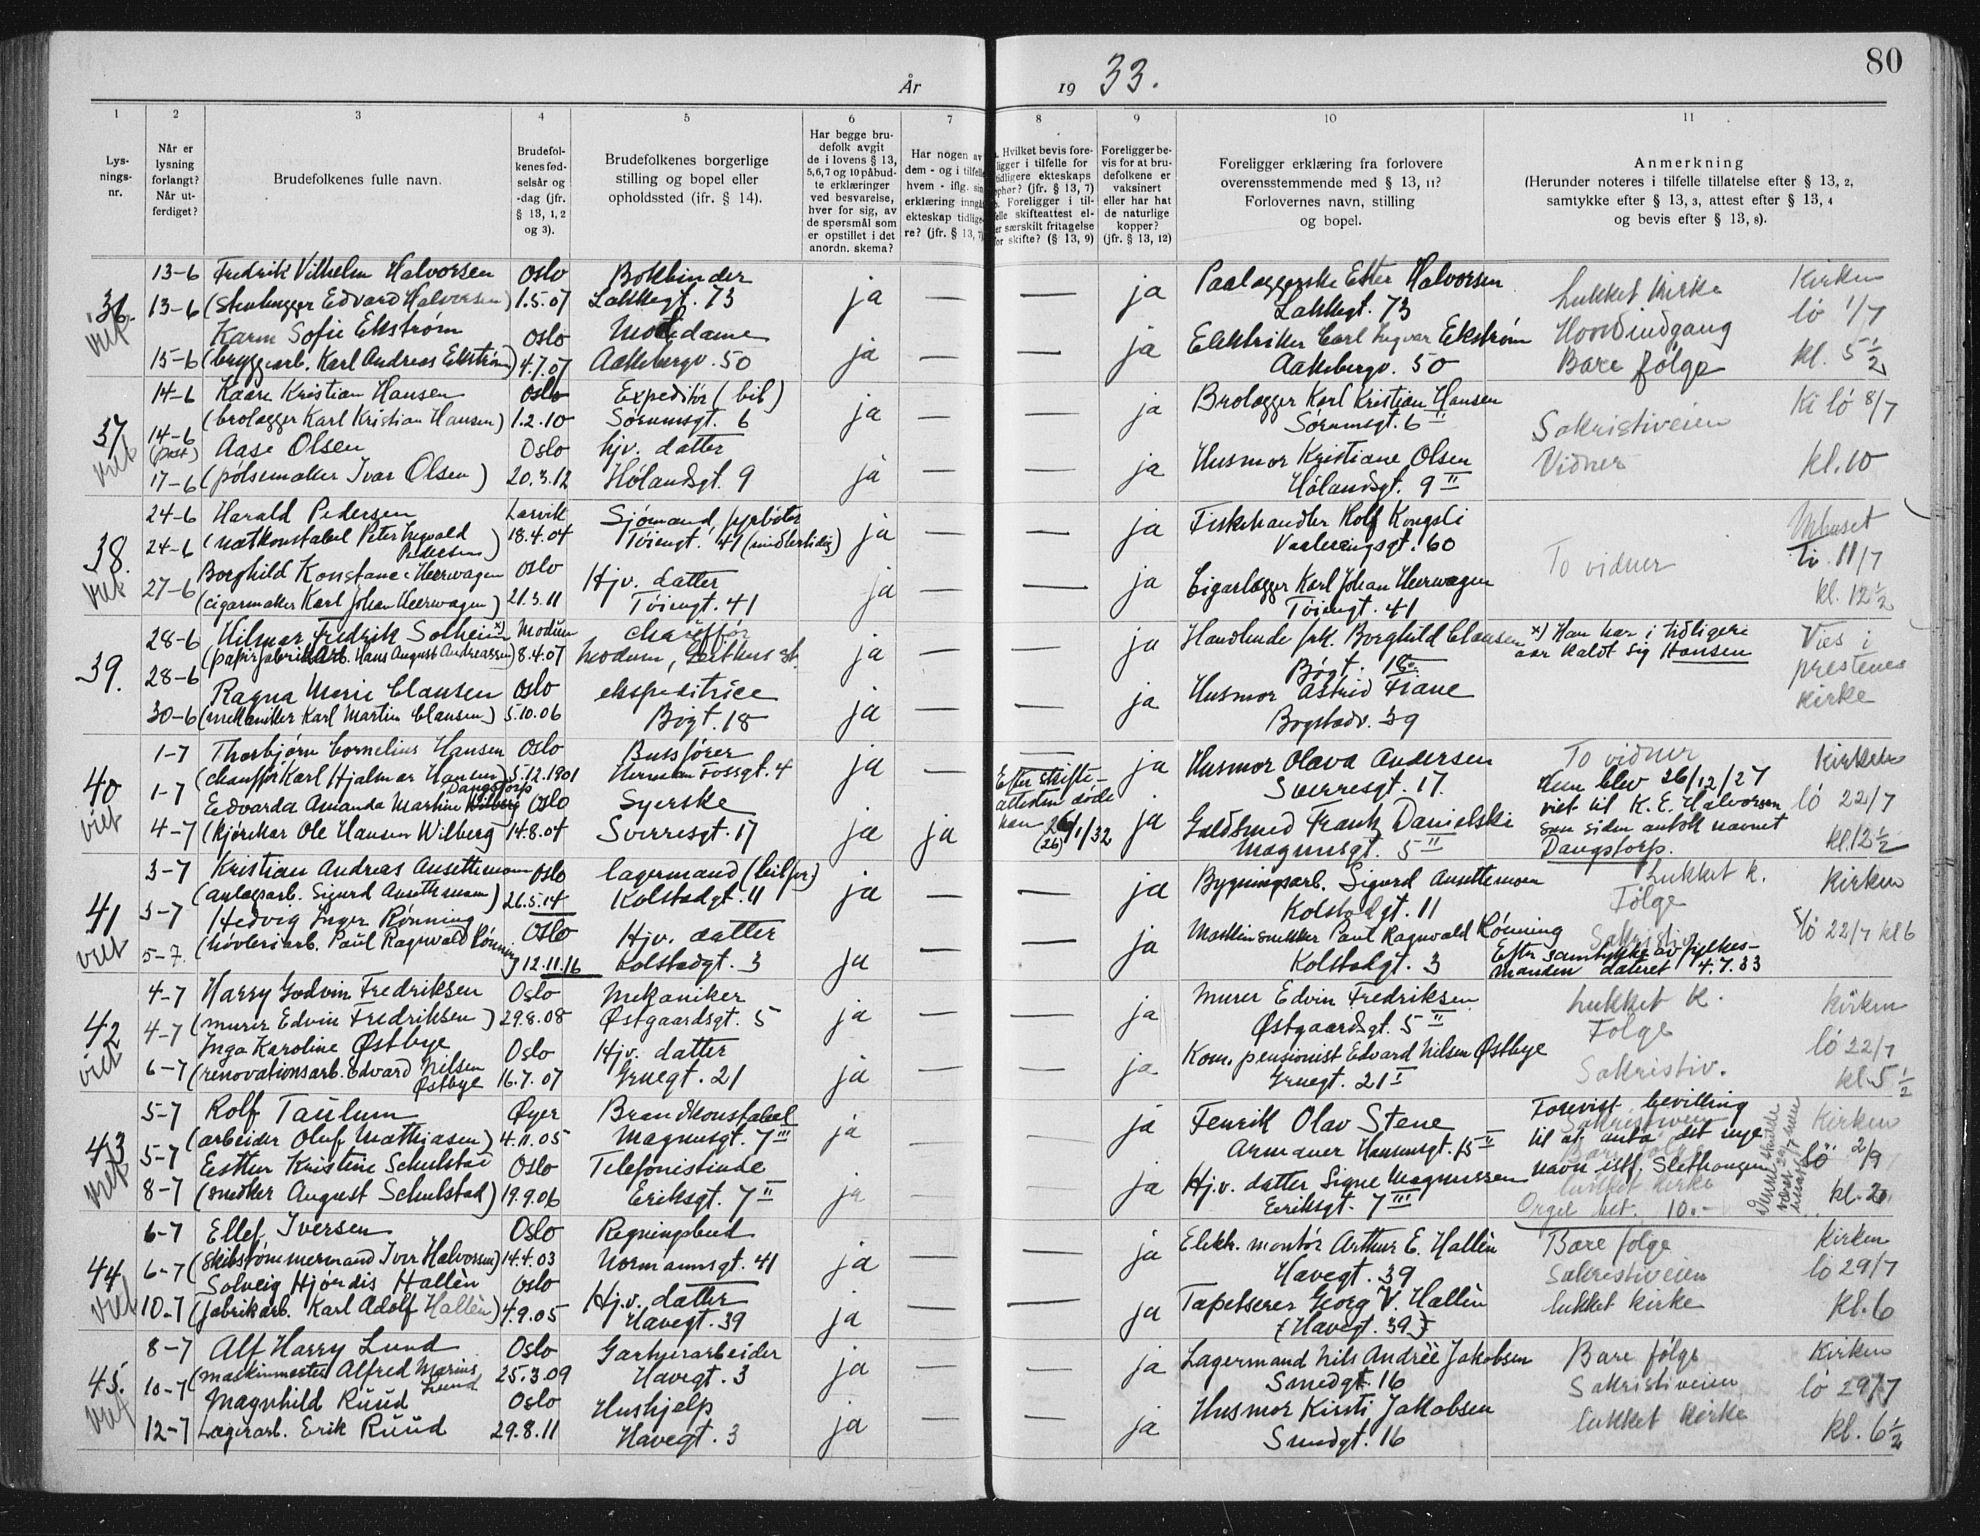 80
År 1933.
1 2 3 4 5 6 7 8 9 10 11
Lys-
nings-
nr.
Når er
lysning
forlangt?
Når ut-
ferdiget?
Brudefolkenes fulle navn.
Brudefol-
kenes fød-
selsår og
-dag (jfr.
§ 13, 1, 2
og 3).
Brudefolkenes borgerlige
stilling og bopel eller
opholdssted (jfr. § 14).
Har begge bru-
defolk avgit
de i lovens § 13,
5,6,7 og 10 påbud-
te erklæringer
ved besvarelse,
hver for sig, av
de spørsmål som
er opstillet i det
anordn. skema?
Har nogen av
dem - og i tilfelle
hvem - iflg. sin
erklæring inngåt
ekteskap tidlige-
re? (jfr. § 13, 7)
Hvilket bevis fore-
ligger i tilfelle for
tidligere ekteskaps
ophør? (jfr. § 13, 7)
Foreligger i til-
felle skifteattest el-
ler særskilt fritagelse
for skifte? (§ 13, 9)
Foreligger be-
vis for at bru-
defolkene er
vaksinert
eller har hat
de naturlige
kopper?
(jfr. § 13, 12)
Foreligger erklæring fra forlovere
overensstemmende med § 13, 11?
Forlovernes navn, stilling
og bopel.
Anmerkning
(Herunder noteres i tilfelle tillatelse efter § 13, 2,
samtykke efter § 13, 3, attest efter § 13, 4
og bevis efter § 13, 8).
13-6 Fredrik Vilhelm Halvorsen Oslo Bokbinder Paalæggerske Ester Halvorsen Kirken
36. 13-6 (Edvard Halvorsen) 1.5.07 Lakkegt. 73 ja — — ja Lakkegt. 73 Lukket kirke lö 1/7
viet Karin Sofie Ekstrøm Oslo Motedame Elektriker Carl Ingvar Ekstrøm Hovedindgang
15-6 (bryggearb. Karl Andreas Ekstrøm) 4.7.07 Aakebergv. 50 ja — — ja Aakebergv. 50 Bare følge kl. 5 1/2
14-6 Kaare Kristian Hansen Oslo Expeditör (bib) Brolægger Karl Kristian Hansen Ki lö 8/7
37 14-6 (brolægger Karl Kristian Hansen) 1.2.10 Sörumsgt. 6 ja — — ja Sörumsgt. 6 II Sakristiveien
viet (post) Aase Olsen Oslo hjv. datter Husmor Kristiane Olsen Vidner kl. 10
17-6 (pölsemaker Ivar Olsen) 20.3.12 Hölandsgt. 9 ja — — ja Hölandsgt. 9 II
24-6 Harald Pedersen Larvik Sjömand, fyrböter Fiskehandler Rolf Kongsli
38. 24-6 (Peter Ingvald Pedersen) 18.4.04 Töiengt. 41 (midlertidig) ja — — ja Vaalerengsgt. 60 To vidner 11/7
viet Borghild Konstance Heerwagen Oslo Hjv. datter Cigarlægger Karl Johan Heerwagen
27-6 (cigarmaker Karl Johan Heerwagen) 21.3.11 Töiengt. 41 ja — — ja Töiengt. 41 kl. 12 1/2
28-6 Hilmar Fredrik Solheim x) Modum chauffør Handlende frk. Borghild Clausen x) Han har i tidligere Vies i
39. 28-6 (papirfabrikarb. Hans August Andreassen) 8.4.07 Modum, ja — — ja Bögt. 18 aar kaldt sig Hansen prestenes
Ragna Marie Clausen Oslo ekspeditrice Husmor Astrid kirke
30-6 (mekaniker Karl Martin Clausen) 5.10.06 Bögt. 18 ja — — ja Bogstadv. 39
1-7 Thorbjørn Cornelius Hansen Oslo Bussfører Husmor Olava Andersen To vidner Kirken
40 1-7 (chauffør Karl Hjalmar Hansen) 5.12.1901 Herman Fossgt. 4 ja — — ja Sverresgt. 17. Hun blev 26/12/27
viet Edvarda Amanda Martine Wilberg Dangstorp Oslo Syerske Efter skifte- Guldsmed Frank Danielski viet til K. E. Halvorsen lö 22/7
4-7 (kjørekar Ole Hansen Wilberg) 14.8.04 Sverresgt. 17 ja ja attesten døde han 26/1/32 (26) ja Magnusgt. 5 II som siden antok navnet Dangstorp. kl. 12 1/2
3-7 Kristian Andreas Ansethmoen Oslo lagermand (bibfor.) Bygningsarb. Sigurd Ansethmoen Lukket k. Kirken
41 3-7 (anlægsarb. Sigurd Ansethmoen) 26.5.14 Kolstadgt. 11 ja — — ja Kolstadgt. 11 Følge
viet Hedvig Inger Rønning Oslo Hjv. datter Maskinsnekker Paul Ragnvald Rönning Sakristiv. lö 22/7 kl 6
5-7. (høvleriarb. Paul Ragnvald Rønning) 12.11.16 Kolstadgt. 3 ja — — ja Kolstadgt. 3 Efter samtykke av fylkes-
manden dateret 4.7.33
4-7 Harry Godvin Fredriksen Oslo Mekaniker Murer Edvin Fredriksen Lukket k. Kirken
42 4-7 (murer Edvin Fredriksen) 29.8.08 Østgaardsgt. 5 ja — — ja Østgaardsgt. 5 II Følge
viet Inga Karoline Østbye Oslo Hjv. datter Kom. pensionist Edvard Nilsen Østbye lö 22/7
6-7 (renovationsarb. Edvard Nilsen Østbye 16.7.07 Gruegt. 21 ja — — ja Gruegt. 21 I Sakristiv. kl. 5 1/2
5-7 Rolf Taulum Øyer Brandkonstabel Fenrik Olav Stene Forevist bevilling Kirken
43 5-7 (arbeider Oluf Mathiasen) 4.11.05 Magnusgt. 7 III ja — — ja Armauer Hansensgt. 15 II til at anta det nye
viet Esther Kristine Schulstad Oslo Telefonistinde Hj.v. datter Signe Magnussen navn istf. Slethaugen lö 2/9
8-7 (snedker August Schulstad) 19.9.06 Eriksgt. 7 II ja — — ja Eriksgt. 7 III lukket kirke
Orgel bet. 10.-
6-7 Ellef Iversen Oslo Regningsbud Elekt. montör Arthur E. Hallèn Bare følge Kirken
44 6-7 (skibstømmermand Iver Halvorsen) 14.4.03 Normannsgt. 41 ja — — ja Havegt. 39 Sakristiveien lö 29/7
viet Solveig Hjördis Hallèn Oslo Hj.v. datter Tapetserer Georg V. Hallèn lukket kirke
10-7 (fabrikarb. Karl Adolf Hallèn) 4.9.05 Havegt. 39 ja — — ja (Havegt. 39) kl. 6
8-7 Alf Harry Lund Oslo Garverarbeider Lagermand Nils Andrèe Jakobsen Bare følge Kirken
45. 10-7 (maskinmester Alfred Marius Lund 25.3.09 Havegt. 3 ja — — ja Smedgt. 16 Sakristiveien lö 29/7
viet Magnhild Ruud Oslo Hushjelp Husmor Kirsti Jakobsen lukket kirke
12-7 Lagerarb. Erik Ruud 29.8.11 Havegt. 3 ja — — ja Smedgt. 16 kl. 6 1/2